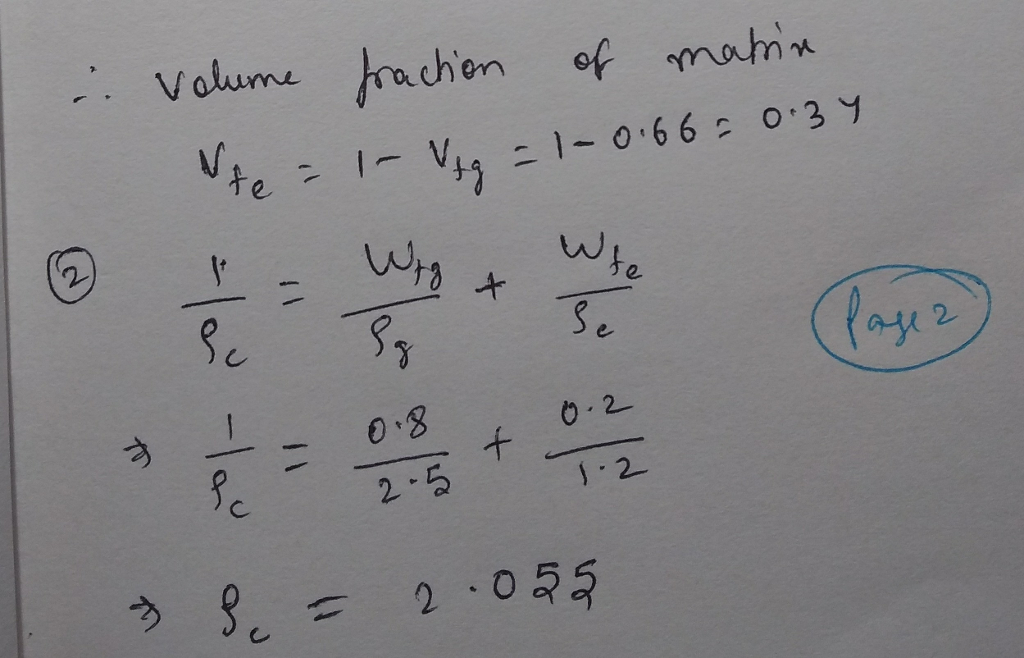 ∴ Volume fraction of matrix
V_fe = 1 - V_fg = 1 - 0.66 = 0.34
② 1/ρ_c = W_fg/ρ_g + W_fe/ρ_e
⇒ 1/ρ_c = 0.8/2.5 + 0.2/1.2
⇒ ρ_c = 2.055
Page 2